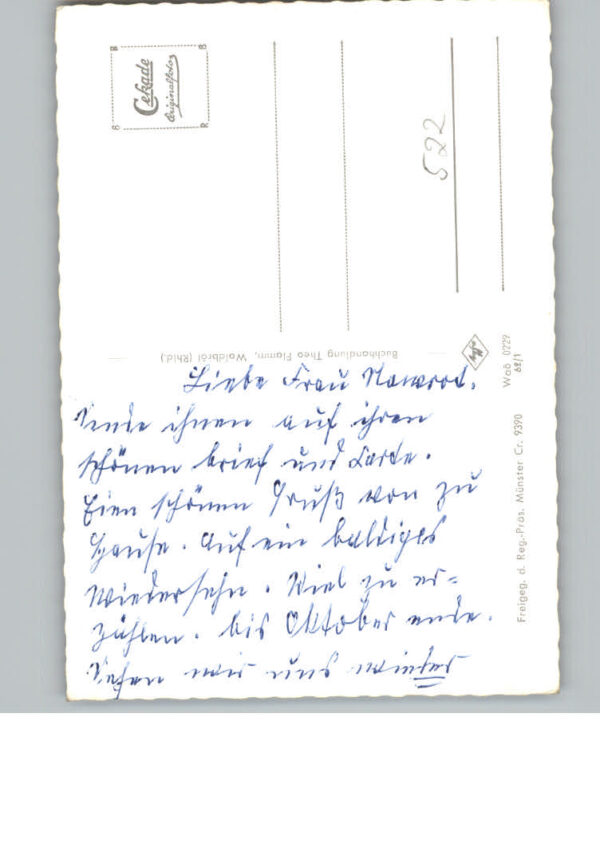 Cekade
Originalfoto
B B
B R
522
Buchhandlung Theo Flamm, Waldbröl (Rhld.)
Agfa
Waß 0229
62/1
Freigeg. d. Reg.-Präs. Münster Cr. 9390
Liebe Frau Nawrot.
Sende ihnen auf ihren
schönen brief und Karte.
Eien schönen Gruß von zu
Hause. Auf ein baldiges
Wiedersehn. Viel zu er=
zählen. bis Oktober ende.
Sehen wir uns wieder